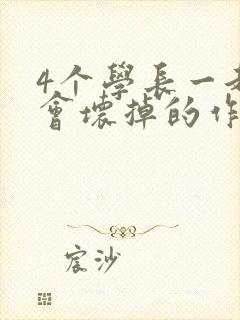 4个學長一
會壞掉的作
宸沙